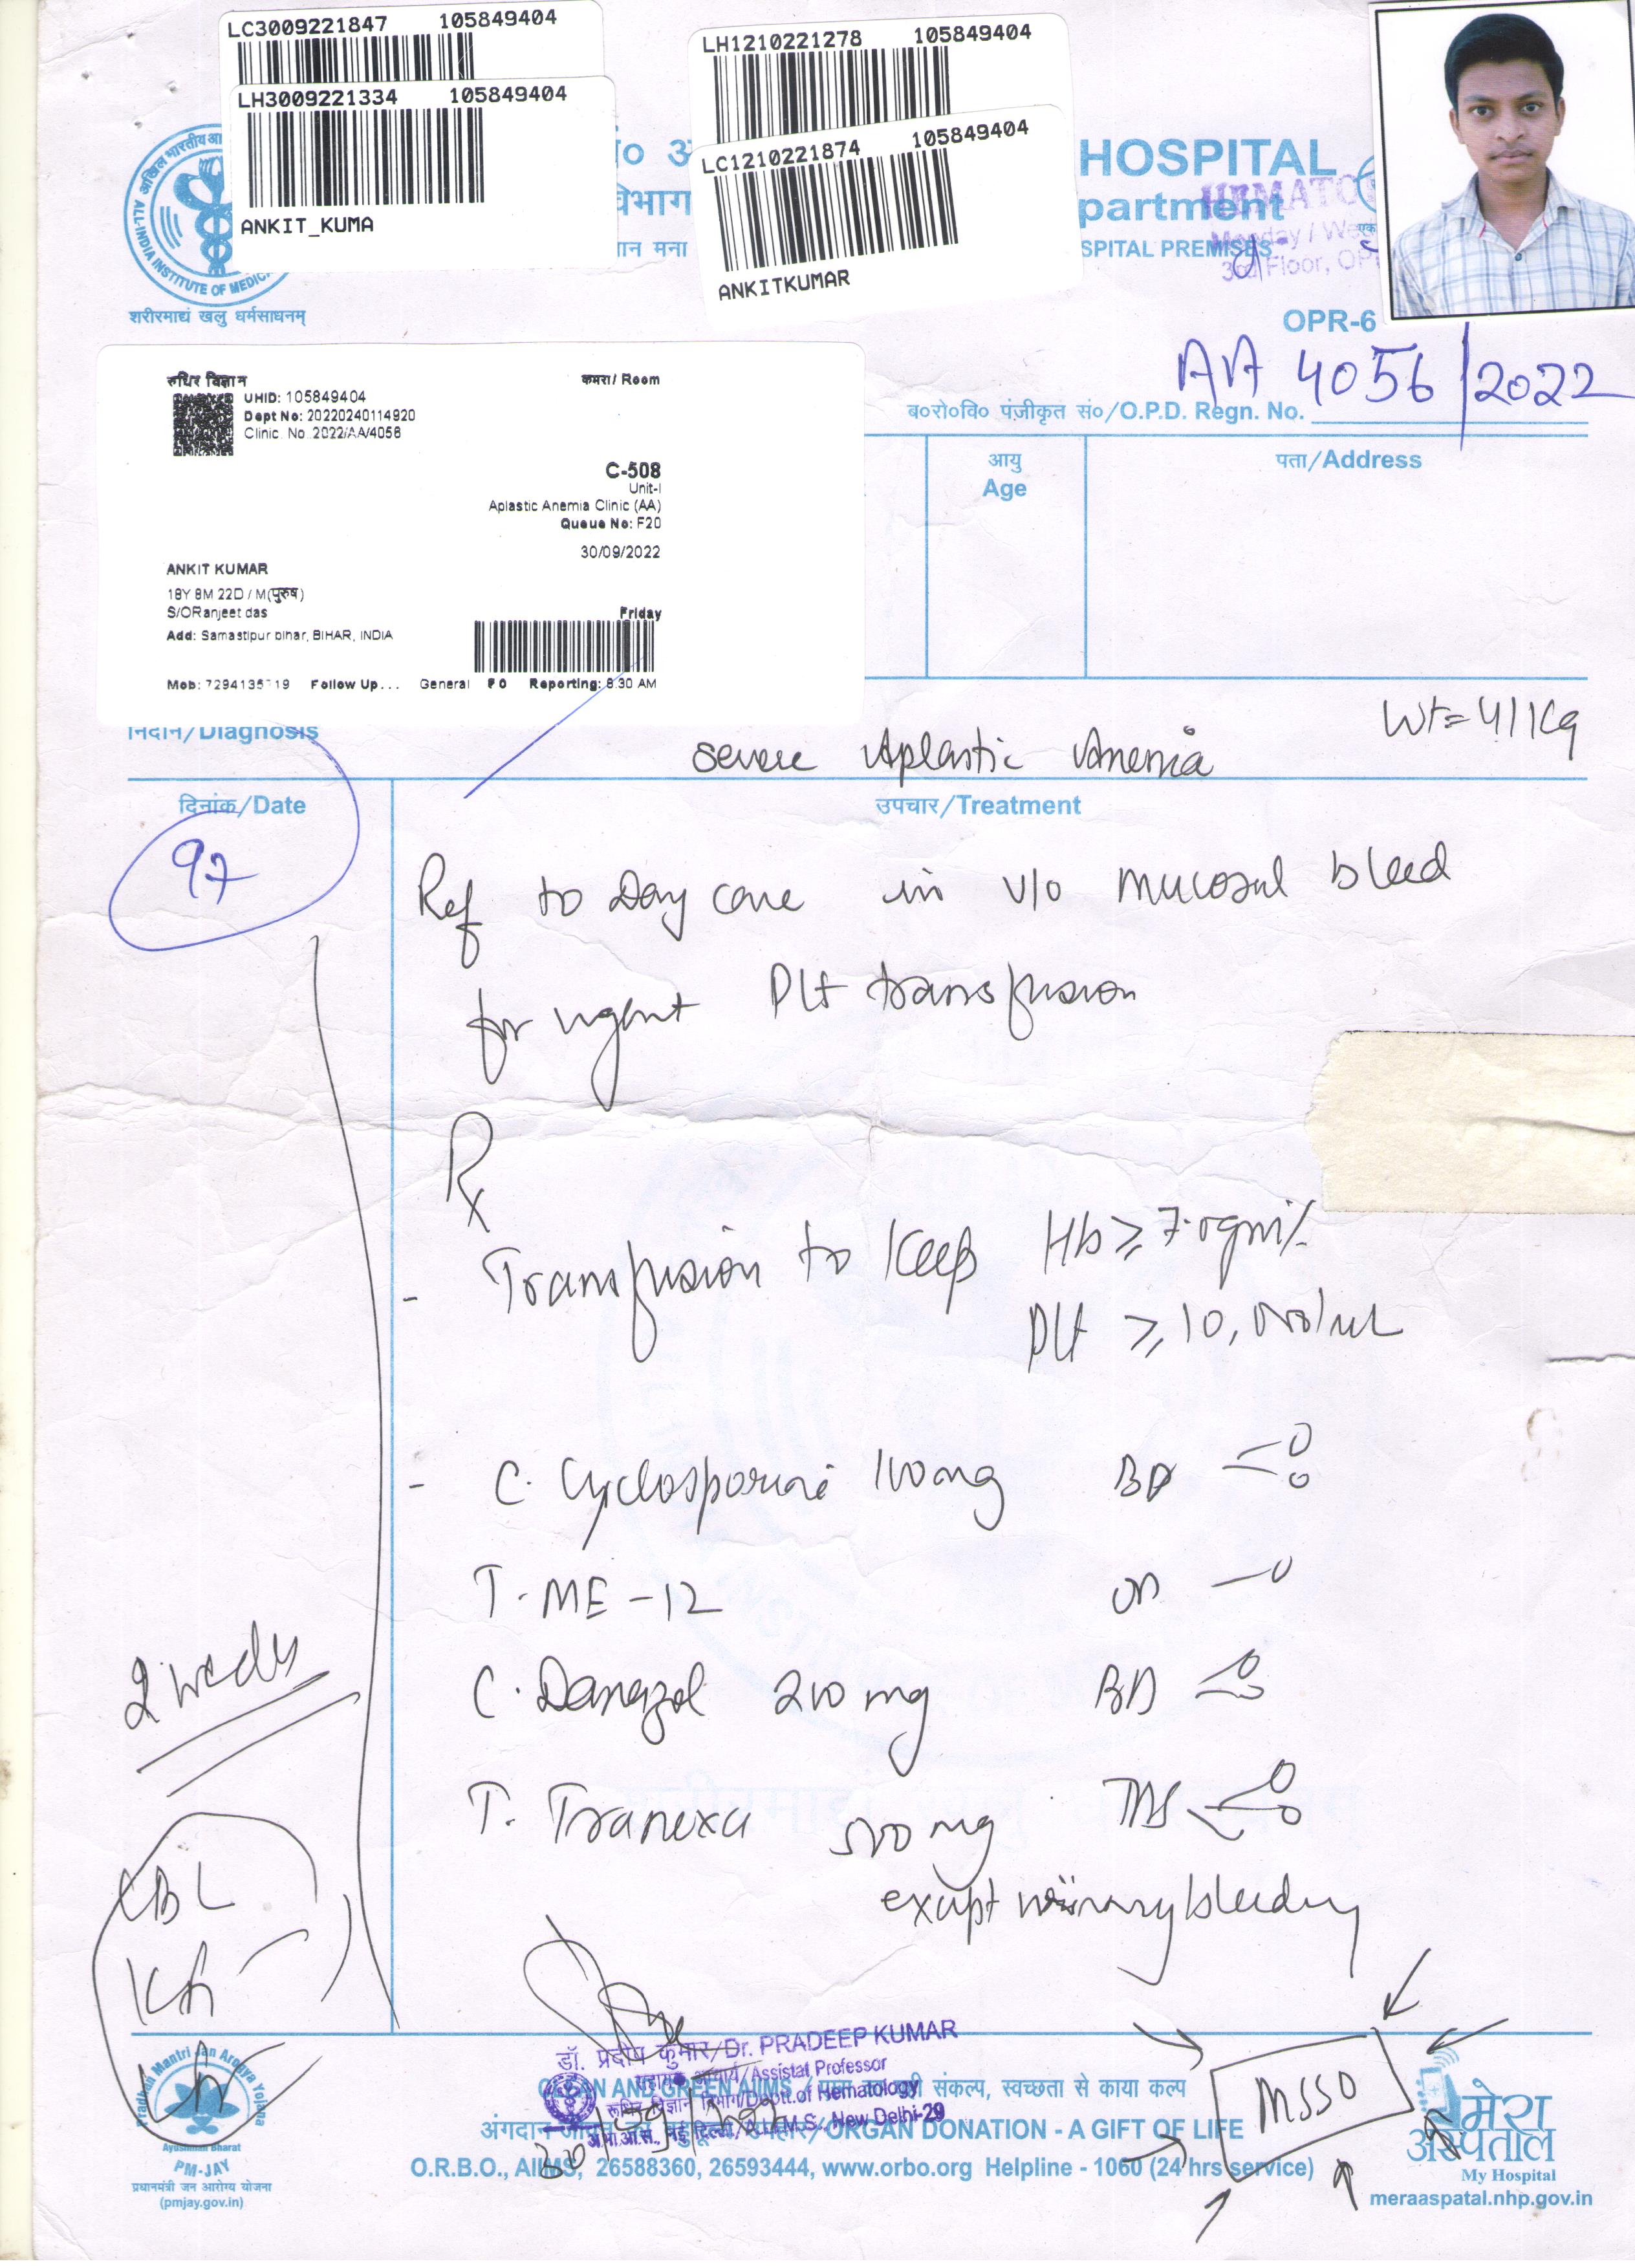 LC3009221847 105849404
LH3009221334 105849404
ANKIT_KUMA
LH1210221278 105849404
LC1210221874 105849404
ANKITKUMAR
HOSPITAL
विभाग
partment
HEMATO
SPITAL PREMISES
Monday / Wed
3rd Floor, OP
ALL-INDIA INSTITUTE OF MEDIC
शरीरमाद्यं खलु धर्मसाधनम्
OPR-6
AA 4056/2022
ब०रो०वि० पंजीकृत सं०/O.P.D. Regn. No.
रुधिर विज्ञान
कमरा/ Room
UHID: 105849404
Dept No: 20220240114920
Clinic. No 2022/AA/4056
C-508
Unit-I
Aplastic Anemia Clinic (AA)
Queue No: F20
30/09/2022
ANKIT KUMAR
18Y 8M 22D / M(पुरुष)
S/ORanjeet das
Friday
Add: Samastipur bihar, BIHAR, INDIA
Follow Up... General F0 Reporting: 8:30 AM
आयु
Age
पता/Address
निदान/Diagnosis
Severe Aplastic Anemia
Wt=41Kg
दिनांक/Date
उपचार/Treatment
97
Ref to Day care in v/o mucosal bleed
for urgent Plt transfusion
Rx
- Transfusion to keep Hb ≥ 7.0gm%
Plt ≥ 10,000/uL
- C. Cyclosporine 100mg BD
T. ME-12 OD
C. Danazol 200 mg BD
T. Tranexa 500 mg TDS
except urinary bleeding
2 weeks
KFT
LFT
डॉ. प्रदीप कुमार/Dr. PRADEEP KUMAR
सहायक आचार्य/Assistal Professor
रूधिर विज्ञान विभाग/Deptt.of Hematology
अ.भा.आ.सं., नई दिल्ली/A.I.I.M.S., New Delhi-29
AND GREEN AIIMS / संकल्प, स्वच्छता से काया कल्प
ORGAN DONATION - A GIFT OF LIFE
O.R.B.O., AIIMS, 26588360, 26593444, www.orbo.org Helpline - 1060 (24 hrs service)
MSSO
Pradhan Mantri Jan Arogya Yojana
Ayushman Bharat
PM-JAY
प्रधानमंत्री जन आरोग्य योजना
(pmjay.gov.in)
मेरा
अस्पताल
My Hospital
meraaspatal.nhp.gov.in